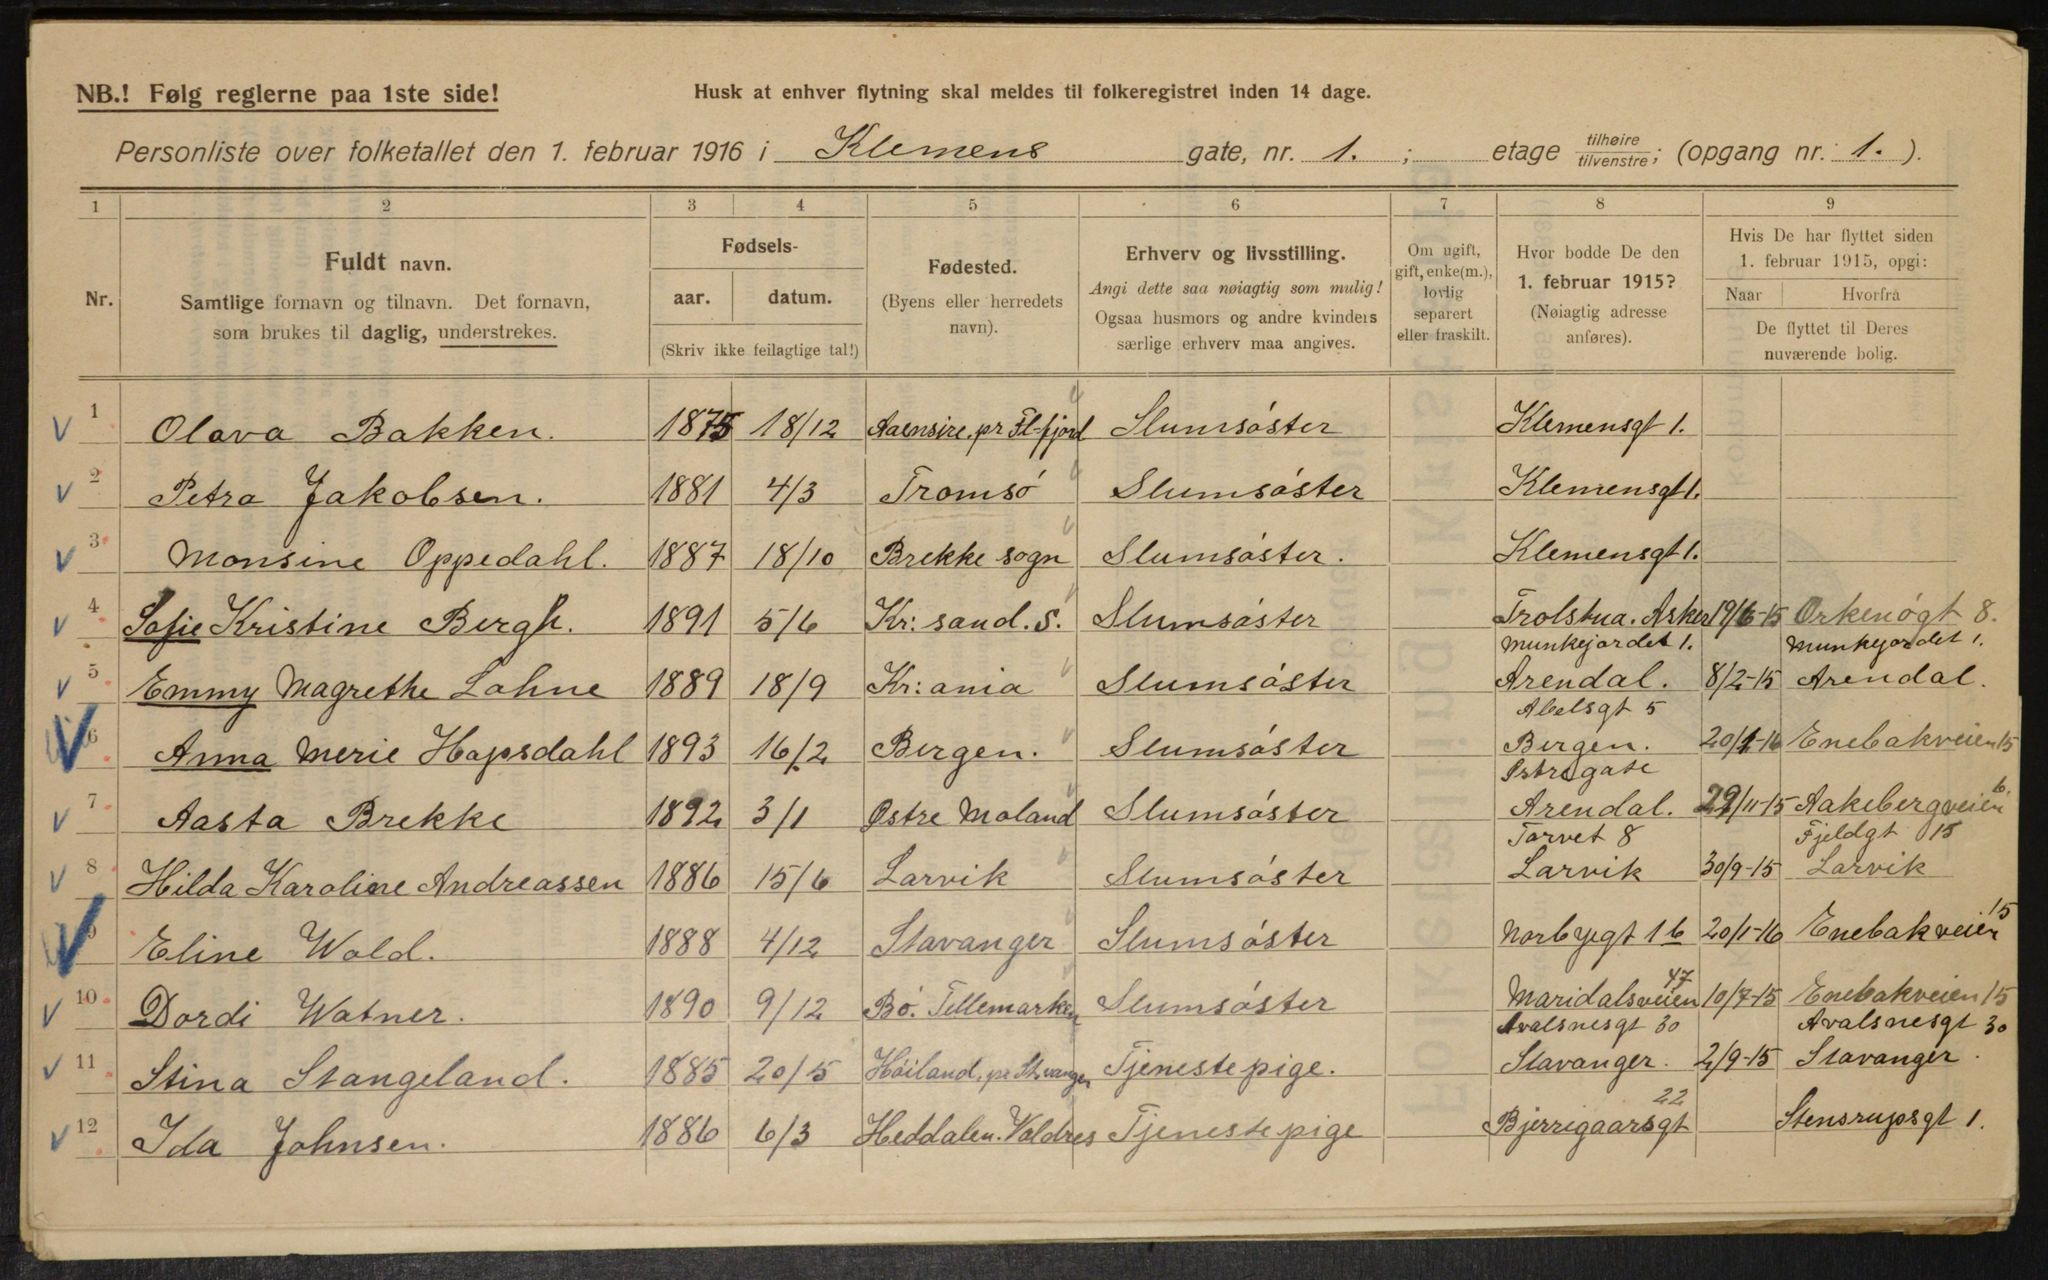 NB.! Følg reglerne paa 1ste side!
Husk at enhver flytning skal meldes til folkeregistret inden 14 dage.
Personliste over folketallet den 1. februar 1916 i Klemens gate, nr. 1. ; etage tilhøire/tilvenstre; (opgang nr. 1. ).
1 2 3 4 5 6 7 8 9
Nr.
Fuldt navn.
Samtlige fornavn og tilnavn. Det fornavn,
som brukes til daglig, understrekes.
Fødsels-
aar. datum.
(Skriv ikke feilagtige tal!)
Fødested.
(Byens eller herredets
navn).
Erhverv og livsstilling.
Angi dette saa nøiagtig som mulig!
Ogsaa husmors og andre kvinders
særlige erhverv maa angives.
Om ugift,
gift, enke(m.),
lovlig
separert
eller fraskilt.
Hvor bodde De den
1. februar 1915?
(Nøiagtig adresse
anføres).
Hvis De har flyttet siden
1. februar 1915, opgi:
Naar Hvorfra
De flyttet til Deres
nuværende bolig.
1 Olava Bakken. 1875 18/12 Aaensire. pr Fl-fjord Slumsöster Klemensgt 1.
2 Petra Jakobsen. 1881 4/3 Tromsö Slumsöster Klemensgt 1.
3 Monsine Oppedahl. 1887 18/10 Brekke sogn Slumsöster. Klemensgt 1.
4 Sofie Kristine Bergh. 1891 5/6 Kr: sand. S. Slumsöster Trolstua. Asker 19/6-15 Orkenögt 8.
Munkejordet 1. Munkejordet 1.
5 Emmy Magrethe Lohne 1889 18/9 Kr: ania Slumsöster Arendal. 8/2-15 Arendal.
Abelsgt 5
6 Anna Merie Hopsdahl 1893 16/2 Bergen. Slumsöster Bergen. 20/1-16 Enebakveien 15
Östregate
7 Aasta Brekke 1892 3/1 Østre Moland Slumsöster Arendal. 29/11-15 Aakebergveien 6.
Torvet 8 Fjeldgt 15
8 Hilda Karoline Andreassen 1886 15/6 Larvik Slumsöster Larvik 30/9-15 Larvik
9 Eline Wold. 1888 4/12 Stavanger Slumsöster Norbyegt 1 b 20/1-16 Enebakveien 15
10 Dordi Watner. 1890 9/12 Bö. Tellemarken Slumsöster Maridalsveien 47 10/7-15 Enebakveien 15
Avalsnesgt 30 Avalsnesgt 30
11 Stina Stangeland. 1885 20/5 Höiland, pr Stvanger Tjenestepige. Stavanger. 2/9-15 Stavanger.
12 Ida Johnsen. 1886 6/3 Heddalen. Valdres Tjenestepige Bjerrigaarsgt 22 Stensrupsgt 1.